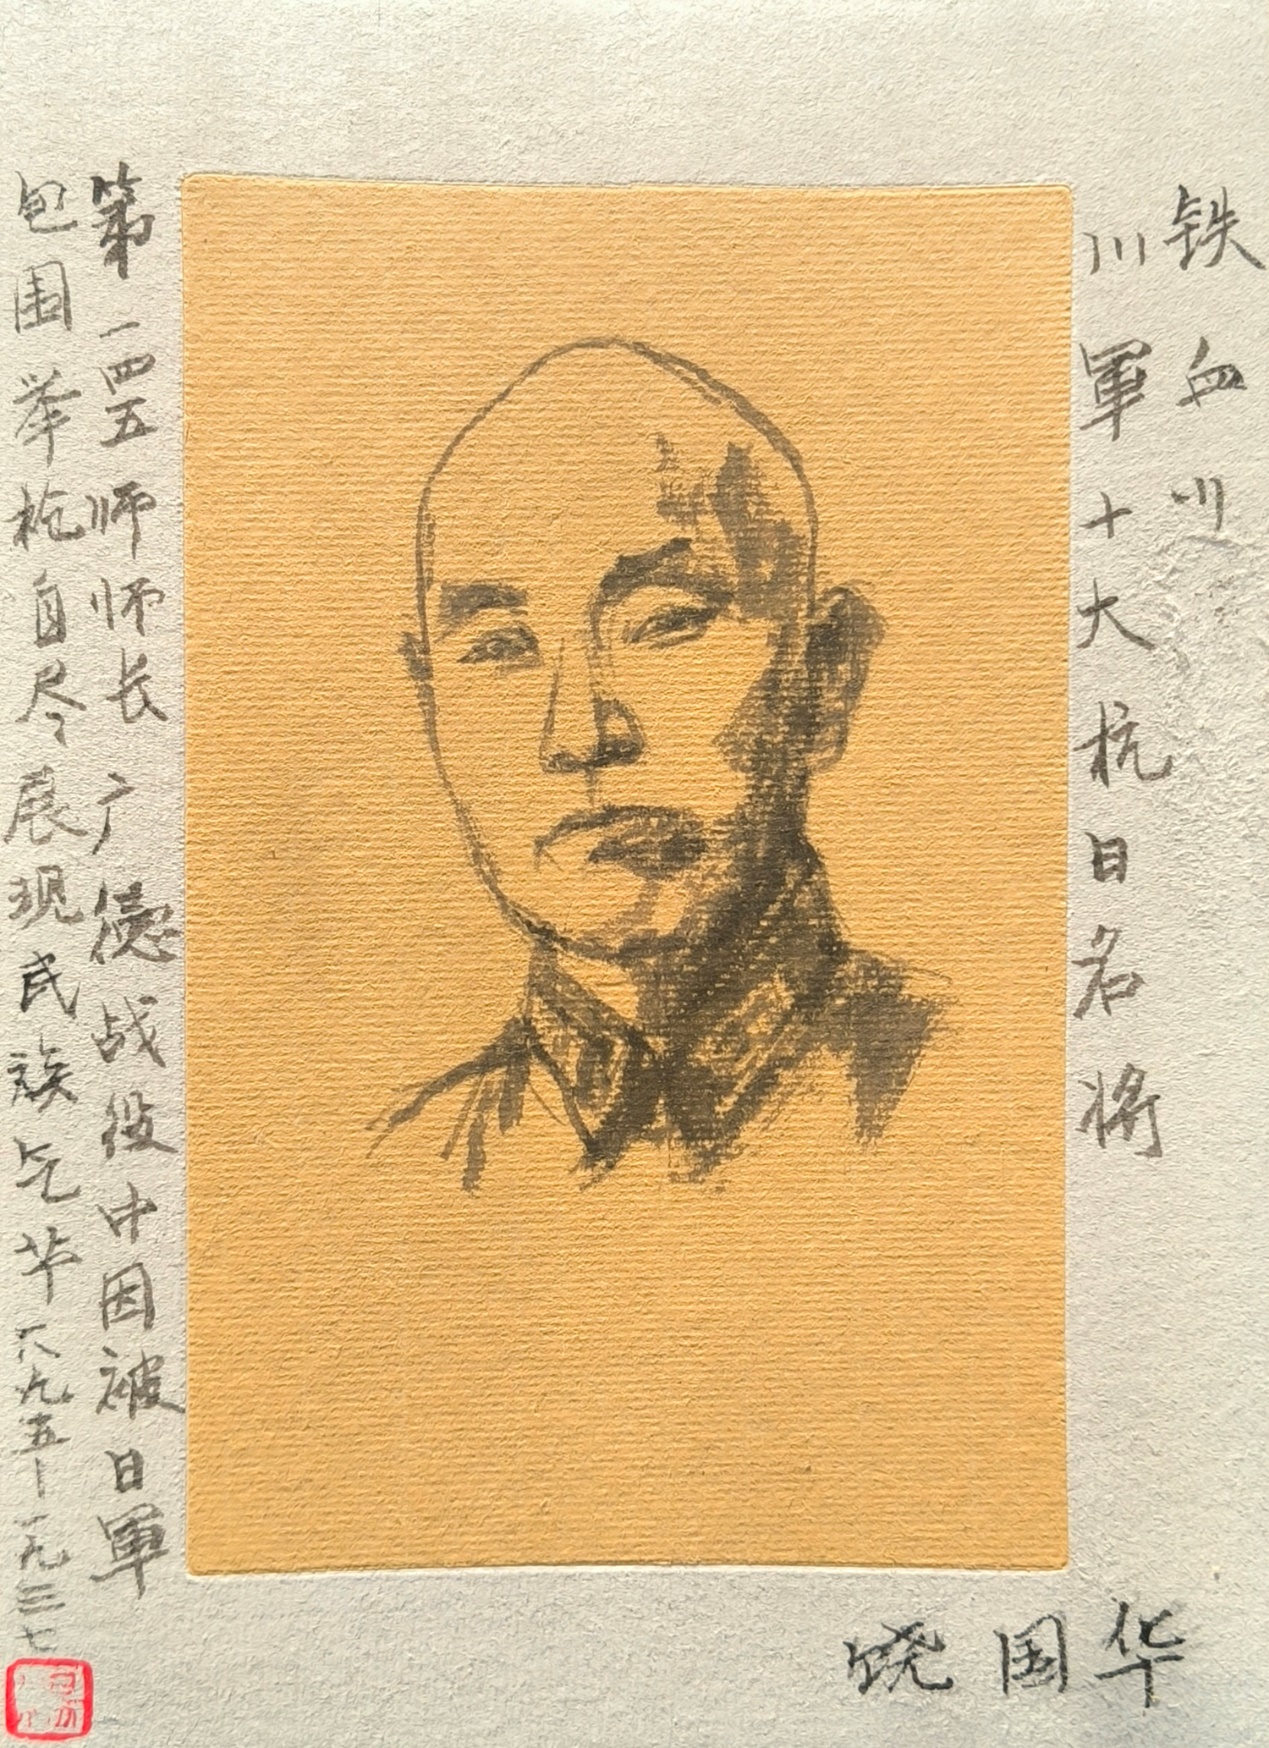 铁血川
川軍十大抗日名将
饶国华
第一四五师师长 广德战役中因被日軍
包围举枪自尽展现民族气节一八九五—一九三七